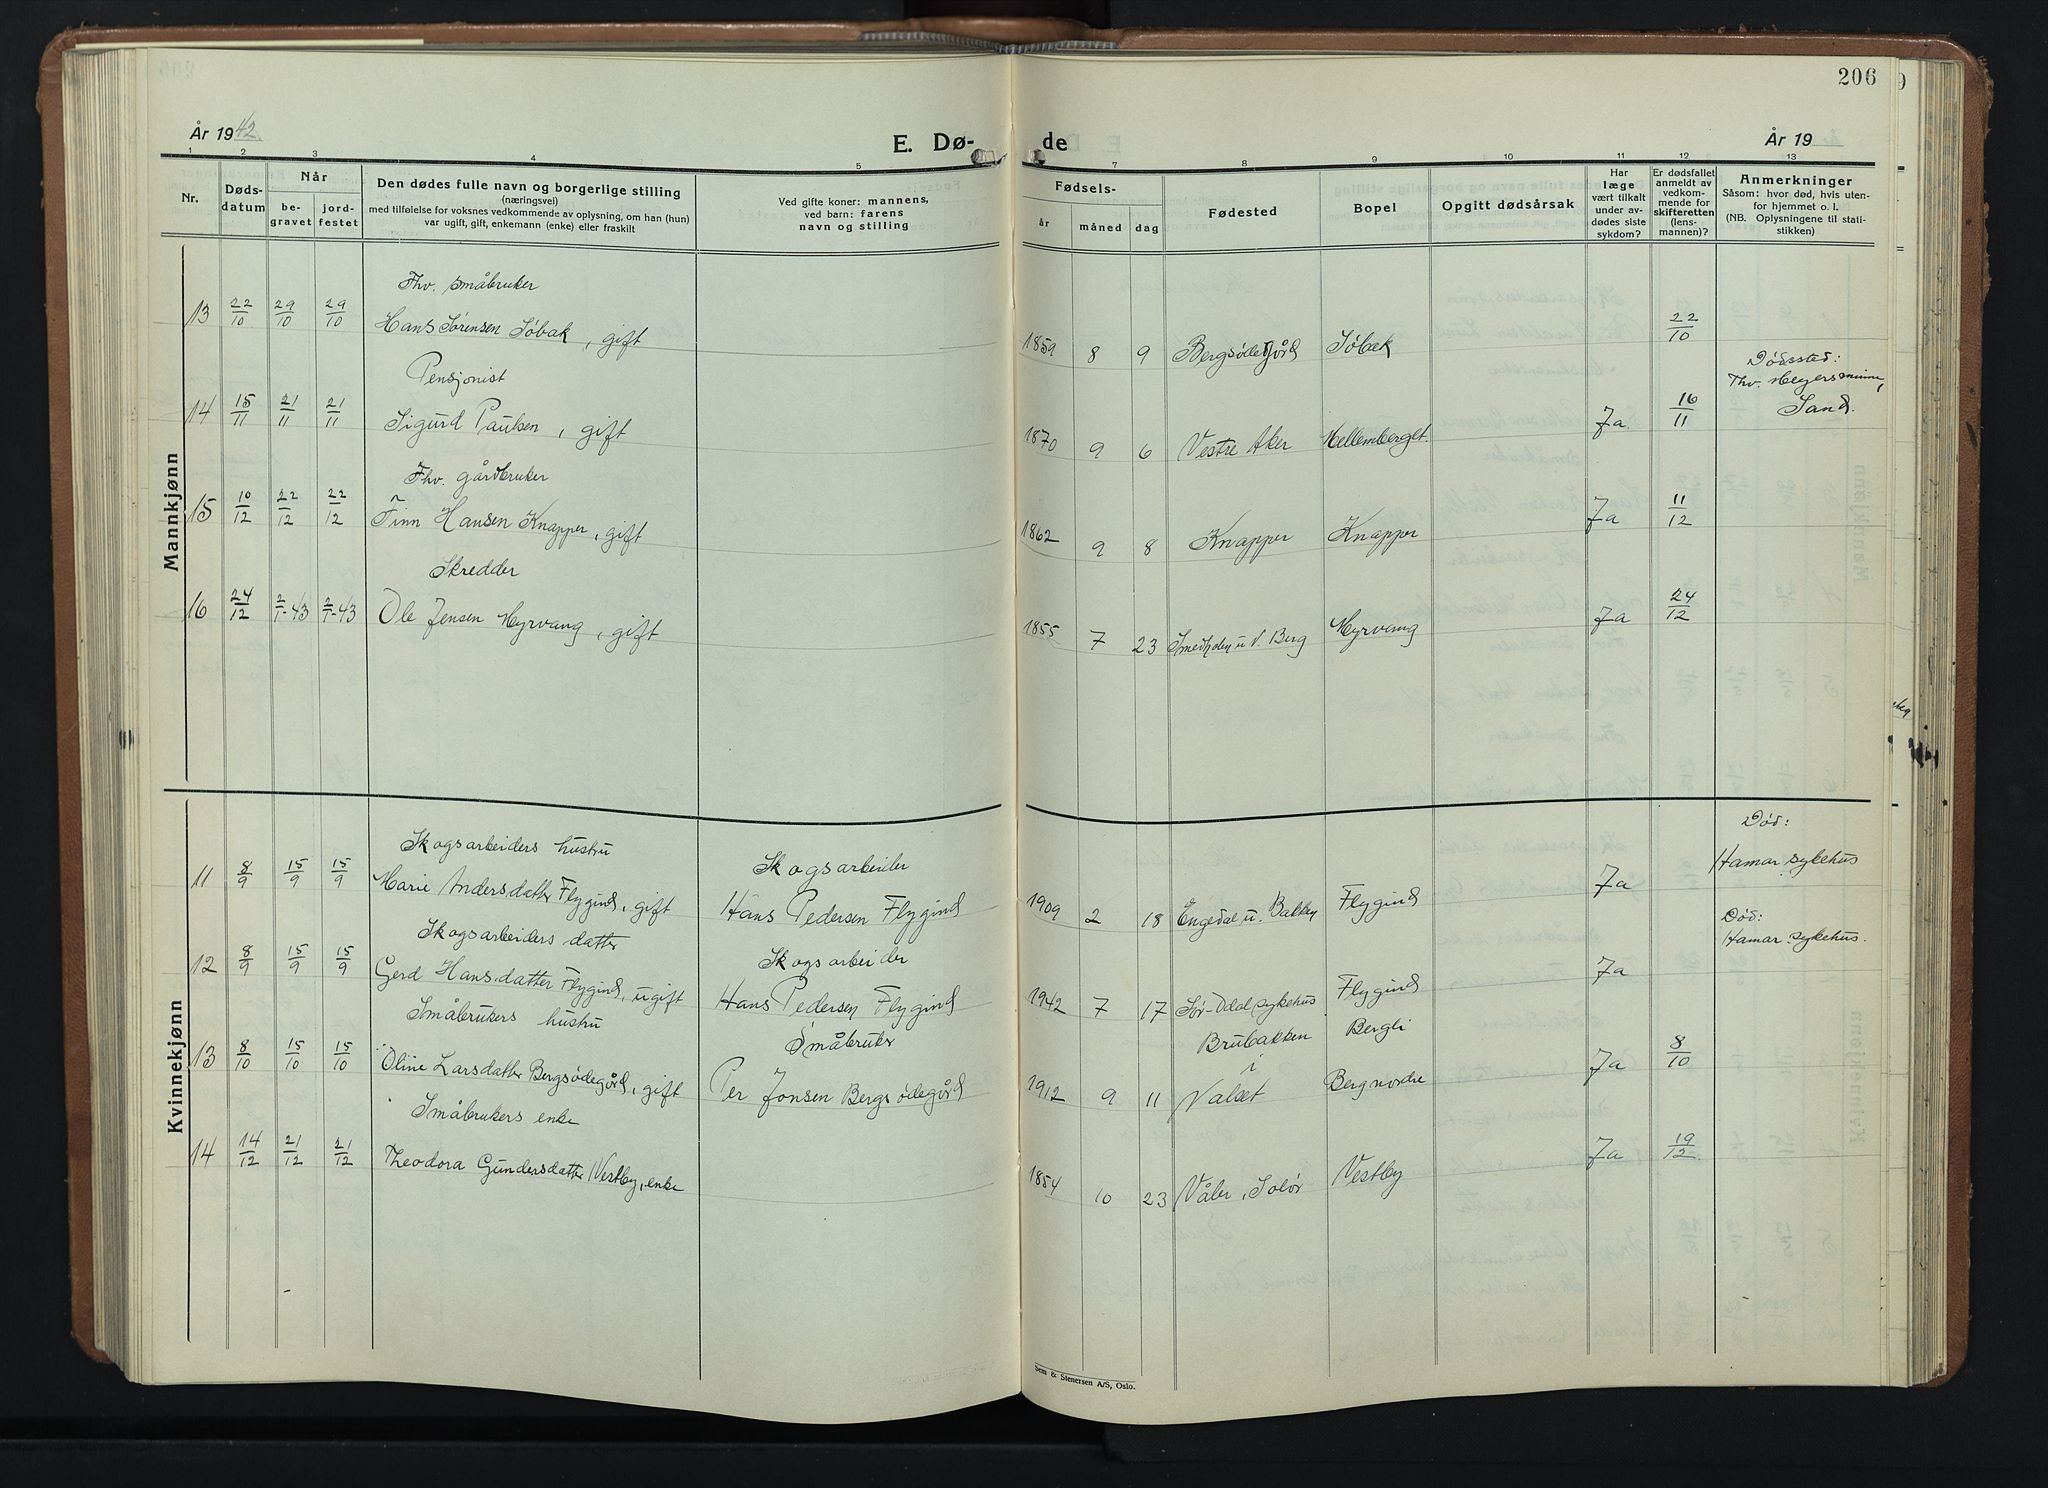 206
År 1942.
E. Dø-
de
År 19
1 2 3 4 5 7 8 9 10 11 12 13
Nr.
Døds-
datum
Når
be-
gravet
jord-
festet
Den dødes fulle navn og borgerlige stilling
(næringsvei)
med tilføielse for voksnes vedkommende av oplysning, om han (hun)
var ugift, gift, enkemann (enke) eller fraskilt
Ved gifte koner: mannens,
ved barn: farens
navn og stilling
Fødsels-
år måned dag
Fødested
Bopel
Opgitt dødsårsak
Har
læge
vært tilkalt
under av-
dødes siste
sykdom?
Er dødsfallet
anmeldt av
vedkom-
mende for
skifteretten
(lens-
mannen)?
Anmerkninger
Såsom: hvor død, hvis uten-
for hjemmet o. l.
(NB. Oplysningene til stati-
stikken)
Mannkjønn
Fhv. småbruker
13 22/10 29/10 29/10 Hans Sørensen Søbak, gift 1859 8 9 Bergsødegård Søbak 22/10
Pensjonist
Dødssted:
Fhv. Hegersminne,
Sand.
14 15/11 21/11 21/11 Sigurd Paulsen, gift 1870 9 6 Vestre Aker Mellemberget. Ja. 16/11
Fhv. gårdbruker
15 10/12 22/12 22/12 Finn Hansen Knapper, gift 1862 9 8 Knapper Knapper Ja 11/12
Skredder
16 24/12 2/1-43 2/1-43 Ole Jensen Myrvang, gift 1855 7 23 Smedholen u. V. Berg Myrvang Ja 24/12
Kvinnekjønn
Skogsarbeiders hustru Skogsarbeider Død:
Hamar sykehus
11 8/9 15/9 15/9 Marie Andersdatter Flygind, gift Hans Pedersen Flygind 1909 2 18 Engedal u. Bakken Flygind Ja
Skogsarbeiders datter Skogsarbeider Død:
Hamar sykehus.
12 8/9 15/9 15/9 Gerd Hansdatter Flygind, ugift Hans Pedersen Flygind 1942 7 17 Sør-Odal sykehus Flygind Ja
Småbrukers hustru Småbruker Brubakken Bergli
13 8/10 15/10 15/10 Oline Larsdatter Bergsødegård, gift Per Jonsen Bergsødegård 1912 9 11 i Valset Berg nordre Ja 8/10
Småbrukers enke
14 14/12 21/12 21/12 Theodora Gundersdatter Vestby, enke 1854 10 23 Våler, Solør Vestby Ja 19/12
Sem & Stenersen A/S, Oslo.